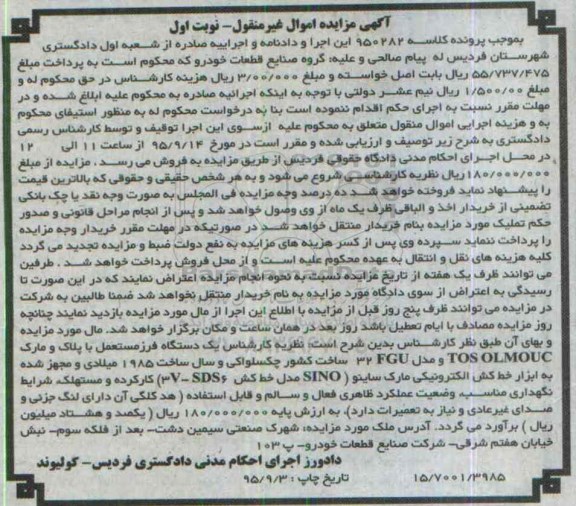 آگهی مزایده اموال غیرمنقول- نوبت اول
بموجب پرونده کلاسه ۹۵۰۲۸۲ این اجرا و دادنامه و اجراییه صادره از شعبه اول دادگستری
شهرستان فردیس له پیام صالحی و علیه: گروه صنایع قطعات خودرو که محکوم است به پرداخت مبلغ
۵۵/۷۳۷/۴۷۵ ریال بابت اصل خواسته و مبلغ ۳/۰۰۰/۰۰۰ ریال هزینه کارشناس در حق محکوم له و
مبلغ ۱/۵۰۰/۰۰ ریال نیم عشر دولتی با توجه به اینکه اجرائیه صادره به محکوم علیه ابلاغ شده و در
مهلت مقرر نسبت به اجرای حکم اقدام ننموده است بنا به درخواست محکوم له به منظور استیفای محکوم
به و هزینه اجرایی اموال منقول متعلق به محکوم علیه ازسوی این اجرا توقیف و توسط کارشناس رسمی
دادگستری به شرح زیر توصیف و ارزیابی شده و مقرر است در مورخ ۹۵/۹/۱۴ از ساعت ۱۱ الی ۱۲
در محل اجرای احکام مدنی دادگاه حقوقی فردیس از طریق مزایده به فروش می رسد. مزایده از مبلغ
۱۸۰/۰۰۰/۰۰۰ ریال نظریه کارشناسی شروع می شود و به هر شخص حقیقی و حقوقی که بالاترین قیمت
را پیشنهاد نماید فروخته خواهد شد ده درصد وجه مزایده فی المجلس به صورت وجه نقد یا چک بانکی
تضمینی از خریدار اخذ و الباقی ظرف یک ماه از وی وصول خواهد شد و پس از انجام مراحل قانونی و صدور
حکم تملیک مورد مزایده بنام خریدار منتقل خواهد شد در صورتیکه در مهلت مقرر خریدار وجه مزایده
را پرداخت ننماید سپرده وی پس از کسر هزینه های مزایده به نفع دولت ضبط و مزایده تجدید می گردد
کلیه هزینه های نقل و انتقال به عهده محکوم علیه است و از محل فروش پرداخت خواهد شد. طرفین
می توانند ظرف یک هفته از تاریخ مزایده نسبت به نحوه انجام مزایده اعتراض نمایند که در این صورت تا
رسیدگی به اعتراض از سوی دادگاه مورد مزایده به نام خریدار منتقل نخواهد شد ضمنا طالبین به شرکت
در مزایده می توانند ظرف پنج روز قبل از مزایده با اطلاع این اجرا از مال مورد مزایده بازدید نمایند چنانچه
روز مزایده مصادف با ایام تعطیل باشد روز بعد در همان ساعت و مکان برگزار خواهد شد. مال مورد مزایده
و بهای آن طبق نظر کارشناس بدین شرح است: نظریه کارشناس یک دستگاه فرزمستعمل با پلاک و مارک
TOS OLMOUC و مدل FGU ۳۲ ساخت کشور چکسلواکی و سال ساخت ۱۹۸۵ میلادی و مجهز شده
به ابزار خط کش الکترونیکی مارک ساینو ( SINO مدل خط کش ۳V- SDS۶) کارکرده و مستهلک، شرایط
نگهداری مناسب، وضعیت عملکرد ظاهری فعال و سالم و قابل استفاده ( هد کلگی آن دارای لنگ جزئی و
صدای غیرعادی و نیاز به تعمیرات دارد)، به ارزش پایه ۱۸۰/۰۰۰/۰۰۰ ریال ( یکصد و هشتاد میلیون
ریال ) برآورد می گردد. آدرس ملک مورد مزایده: شهرک صنعتی سیمین دشت- بعد از فلکه سوم- نبش
خیابان هفتم شرقی- شرکت صنایع قطعات خودرو- پ ۱۰۳
دادورز اجرای احکام مدنی دادگستری فردیس- گولیوند
تاریخ چاپ : ۹۵/۹/۳
۱۵/۷۰۰۱/۳۹۸۵